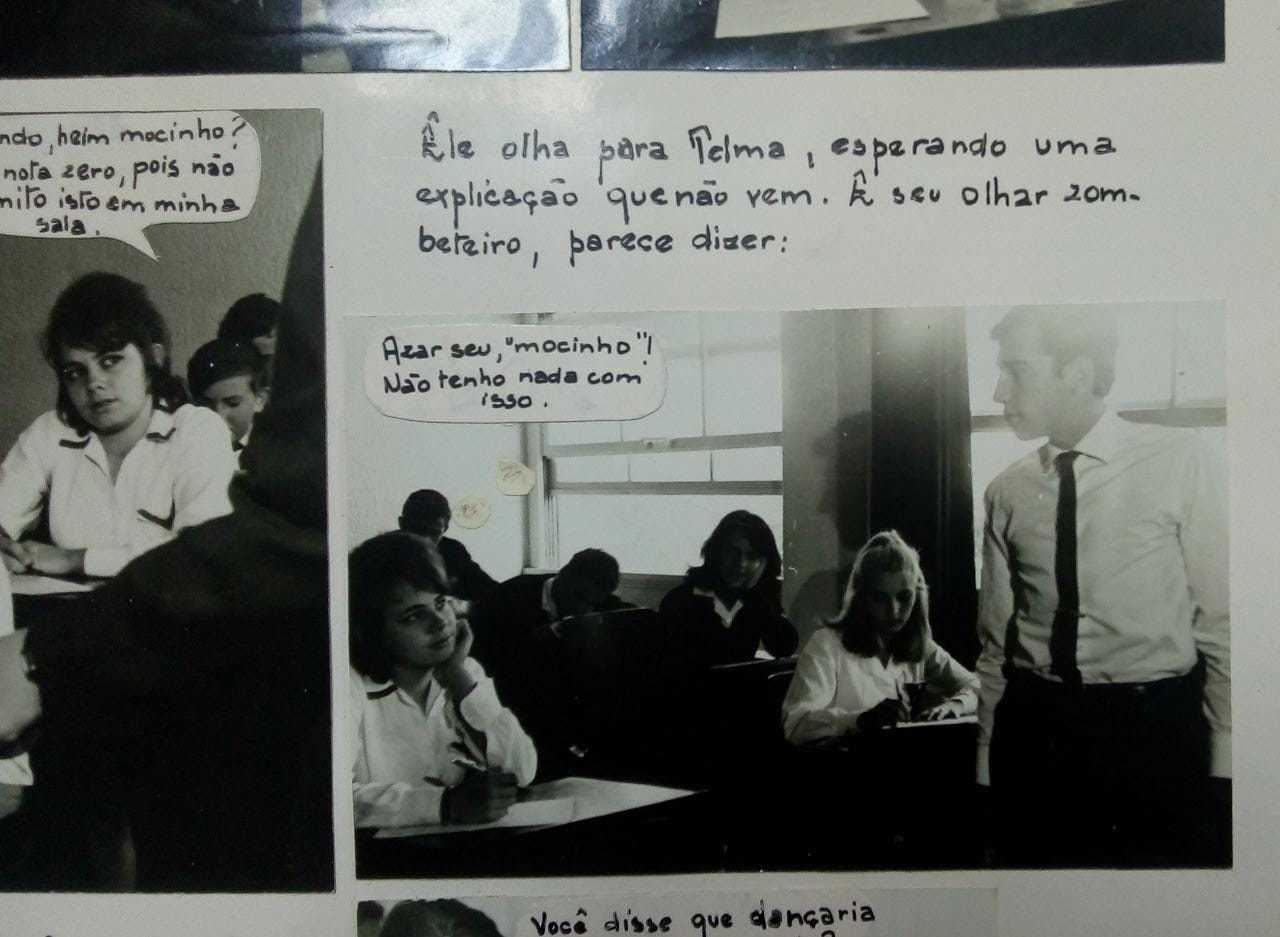 ndo, heim mocinho?
nota zero, pois não
mito isto em minha
sala.
Êle olha para Telma, esperando uma
explicação que não vem. E seu olhar zom-
beteiro, parece dizer:
Azar seu, "mocinho"!
Não tenho nada com
isso.
Você disse que dançaria